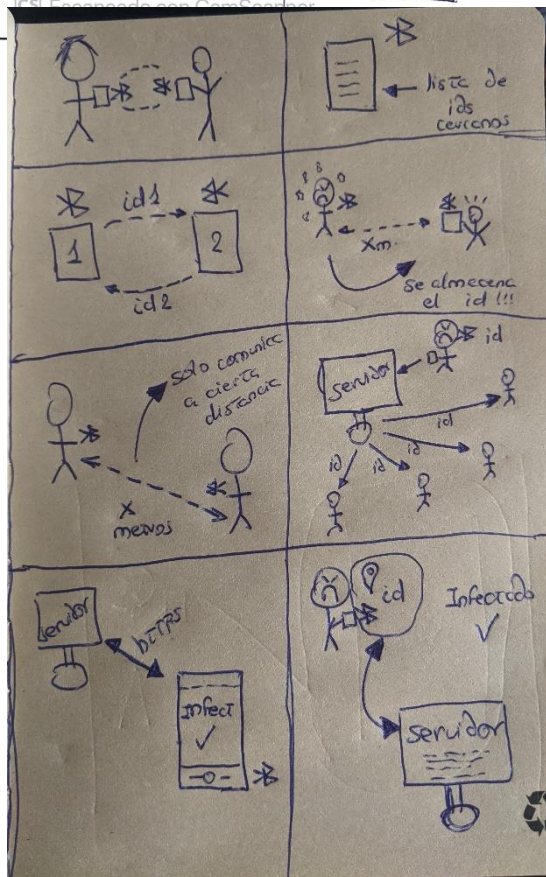 Escaneado con CamScanner
lista de
ids
cercanos
id1
1
2
id2
Xm.
se almacena
el id!!!
solo comunica
a cierta
distancia
X
metros
id
servidor
id
id
id
id
servidor
HTTPS
Infect
id
Infectado
servidor